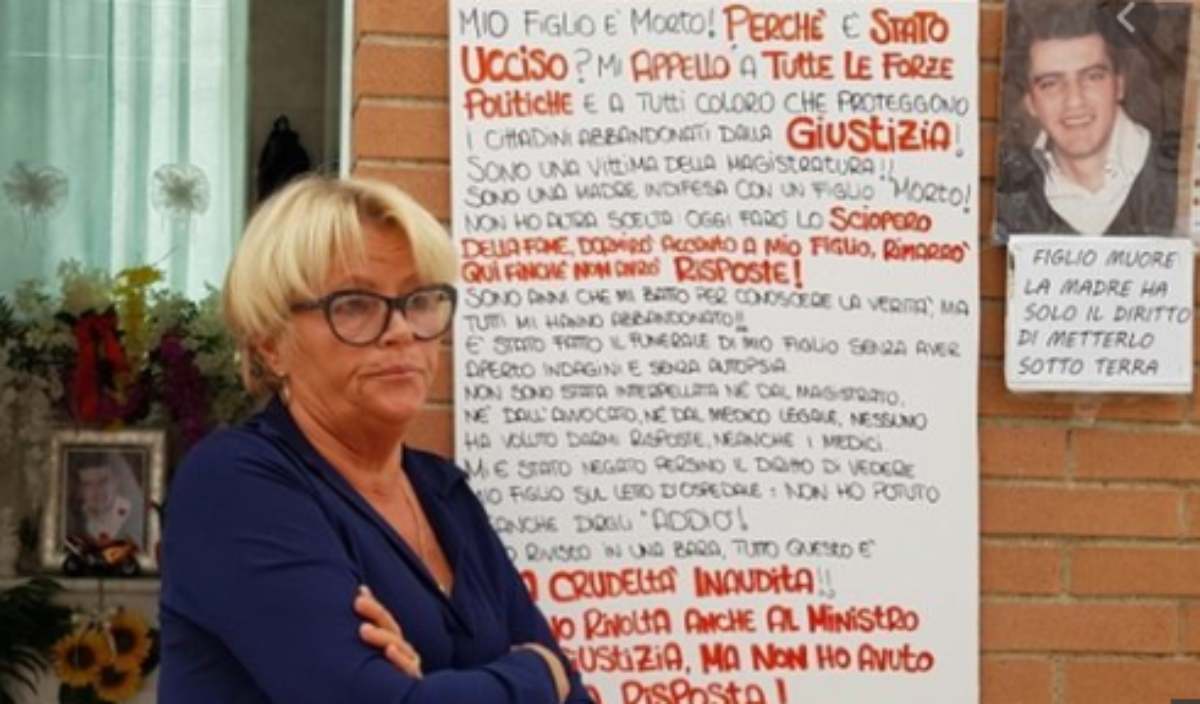 MIO FIGLIO E' MORTO! PERCHE' E' STATO
UCCISO? MI APPELLO A TUTTE LE FORZE
POLITICHE E A TUTTI COLORO CHE PROTEGGONO
I CITTADINI ABBANDONATI DALLA GIUSTIZIA!
SONO UNA VITTIMA DELLA MAGISTRATURA!!
SONO UNA MADRE INDIFESA CON UN FIGLIO "MORTO!
NON HO ALTRA SCELTA: OGGI FARO' LO SCIOPERO
DELLA FAME, DORMIRO' ACCANTO A MIO FIGLIO, RIMARRO'
QUI FINCHE' NON AVRO' RISPOSTE!
SONO ANNI CHE MI BATTO PER CONOSCERE LA VERITA', MA
TUTTI MI HANNO ABBANDONATO!!
E' STATO FATTO IL FUNERALE DI MIO FIGLIO SENZA AVER
APERTO INDAGINI E SENZA AUTOPSIA.
NON SONO STATA INTERPELLATA NE' DAL MAGISTRATO,
NE' DALL'AVVOCATO, NE' DAL MEDICO LEGALE, NESSUNO
HA VOLUTO DARMI RISPOSTE, NEANCHE I MEDICI.
MI E' STATO NEGATO PERSINO IL DIRITTO DI VEDERE
MIO FIGLIO SUL LETTO D'OSPEDALE: NON HO POTUTO
NEANCHE DIRGLI "ADDIO"!
RIVISTO IN UNA BARA, TUTTO QUESTO E'
CRUDELTA' INAUDITA!!
RIVOLTA ANCHE AL MINISTRO
GIUSTIZIA, MA NON HO AVUTO
RISPOSTA!
FIGLIO MUORE
LA MADRE HA
SOLO IL DIRITTO
DI METTERLO
SOTTO TERRA